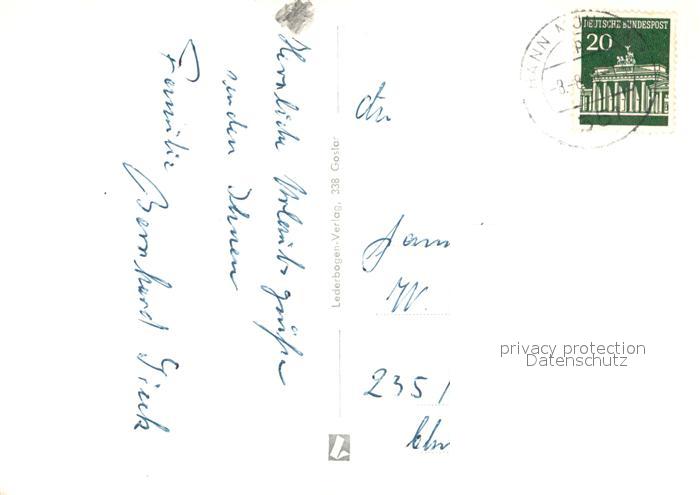 Herzliche Urlaubsgrüße
senden Ihnen
Familie
Bernhard
Lederbogen-Verlag, 338 Goslar
An
Fam
W.
235
DEUTSCHE BUNDESPOST
20
HANN MÜN
privacy protection
Datenschutz